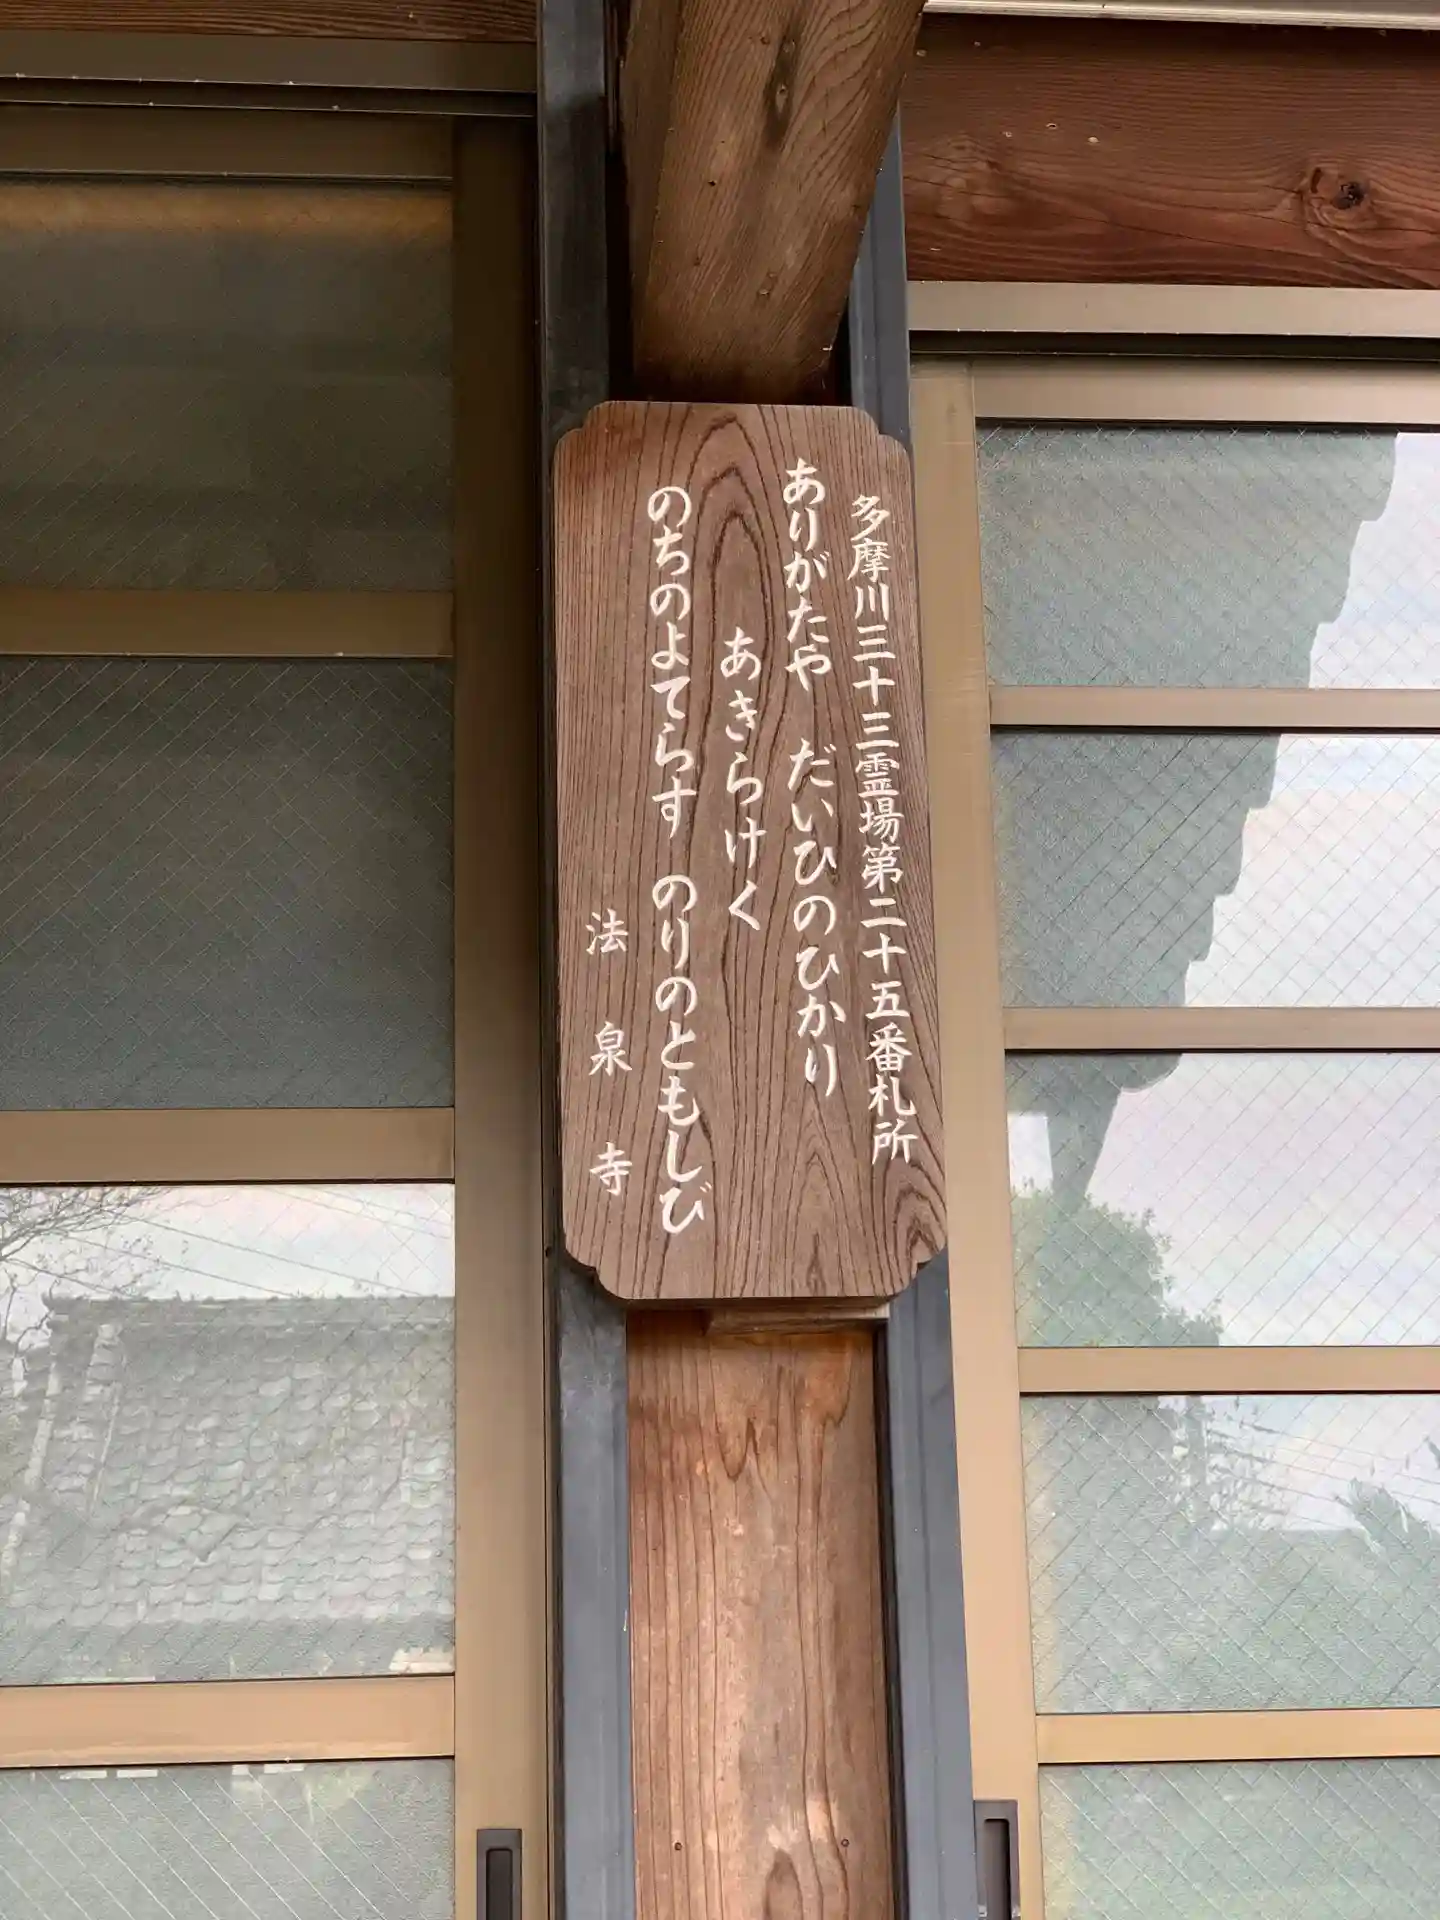 多摩川三十三霊場第二十五番札所
ありがたや だいひのひかり
あきらけく
のちのよてらす のりのともしび
法泉寺